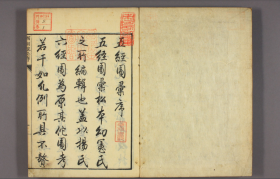 五經圖彙序
五經圖彙松本幼憲氏
之所編輯也蓋以楊氏
六經圖為原其他圖考
若干如凡例所具不贅